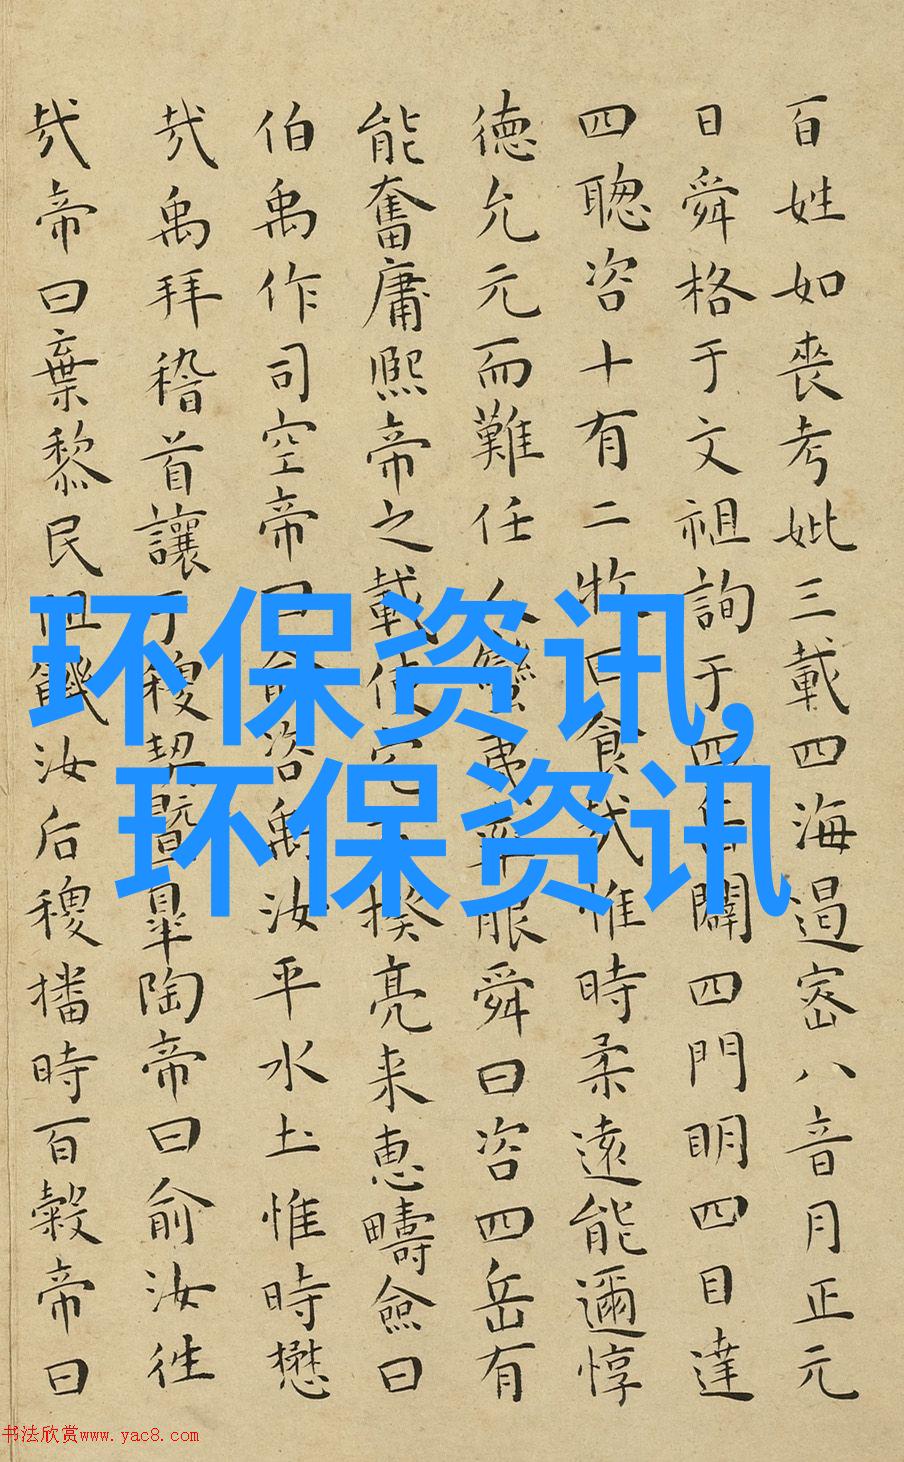 百姓如喪考妣三載四海遏密八音月正元
日舜格于文祖詢于四岳闢四門明四目達
四聦咨十有二牧曰食哉惟時柔遠能邇惇
徳允元而難任人蠻夷率服舜曰咨四岳有
能奮庸熙帝之載使宅揆亮采惠疇僉曰
伯禹作司空帝曰俞咨禹汝平水土惟時懋
哉禹拜稽首讓于稷契暨皋陶帝曰俞汝徃
哉帝曰棄黎民阻饑汝后稷播時百穀帝曰
环保资讯,
环保资讯
书法欣赏www.yac8.com